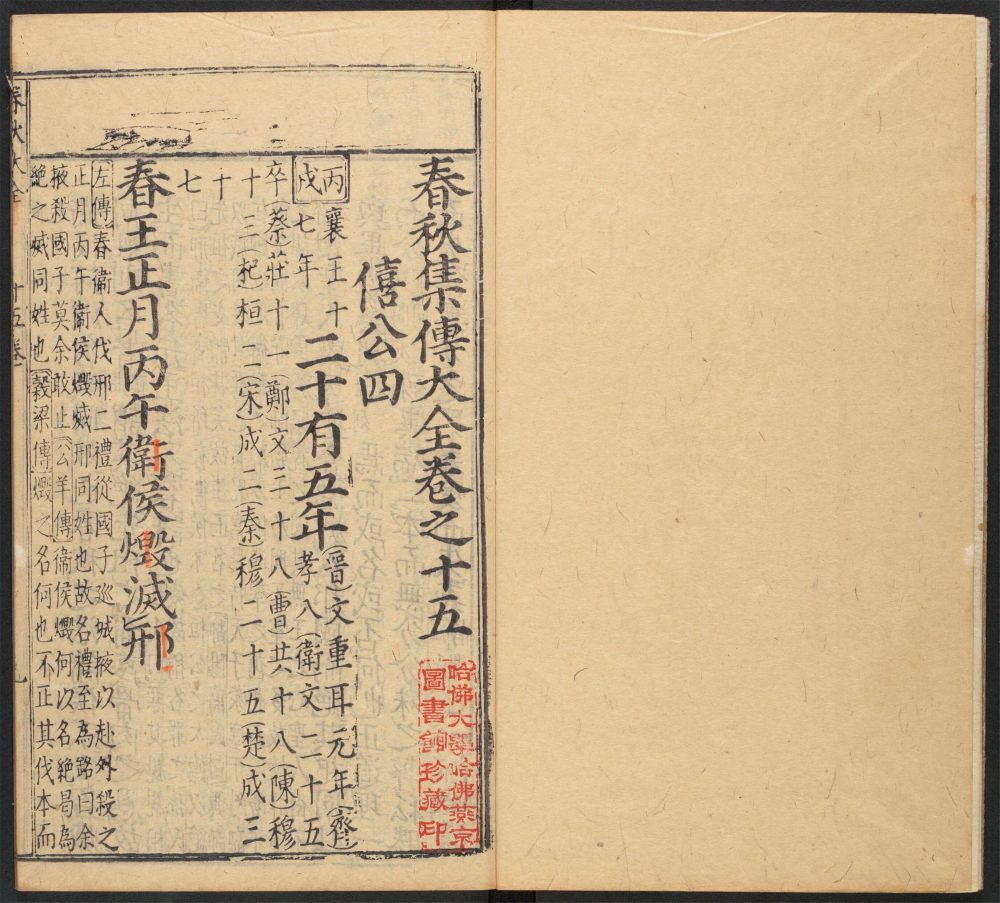 春秋集傳大全卷之十五
哈佛大學哈佛燕京
圖書館珍藏印
僖公四
丙戌
襄王十
七年
二十有五年
晉文重耳元年齊
孝八衛文二十五
卒蔡莊十一鄭文三十八曹共十八陳穆
十三杞桓二宋成二秦穆二十五楚成三
十
七
春王正月丙午衛侯燬滅邢
左傳春衛人伐邢二禮從國子巡城掖以赴外殺之
正月丙午衛侯燬滅邢同姓也故名禮至為銘曰余
掖殺國子莫余敢止公羊傳衛侯燬何以名絕曷為
絕之滅同姓也穀梁傳燬之名何也不正其伐本而
春秋大全 十五卷